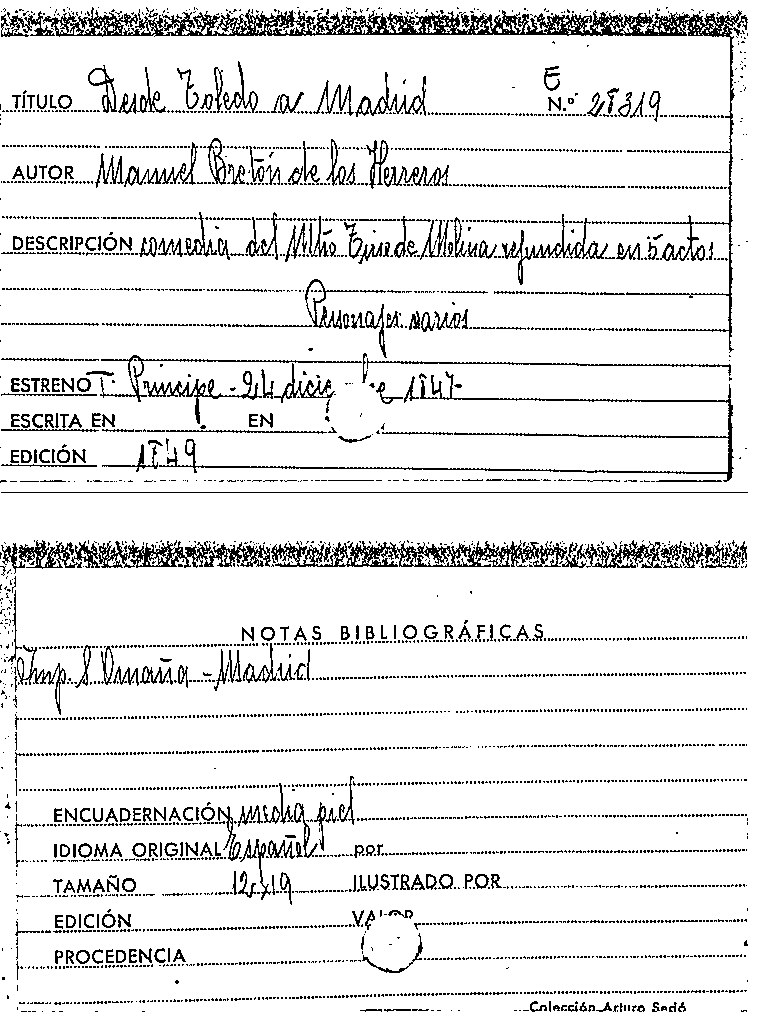 E
TÍTULO Desde Toledo a Madrid N.º 28319
AUTOR Manuel Bretón de los Herreros
DESCRIPCIÓN comedia del Mtro Tirso de Molina refundida en 5 actos
Personajes varios
ESTRENO T. Príncipe - 24 dicie 1847-
ESCRITA EN EN
EDICIÓN 1849
NOTAS BIBLIOGRÁFICAS
Imp. S. Omaña - Madrid
ENCUADERNACIÓN media piel
IDIOMA ORIGINAL Español por
TAMAÑO 12x19 ILUSTRADO POR
EDICIÓN VALOR
PROCEDENCIA
Colección Arturo Sedó